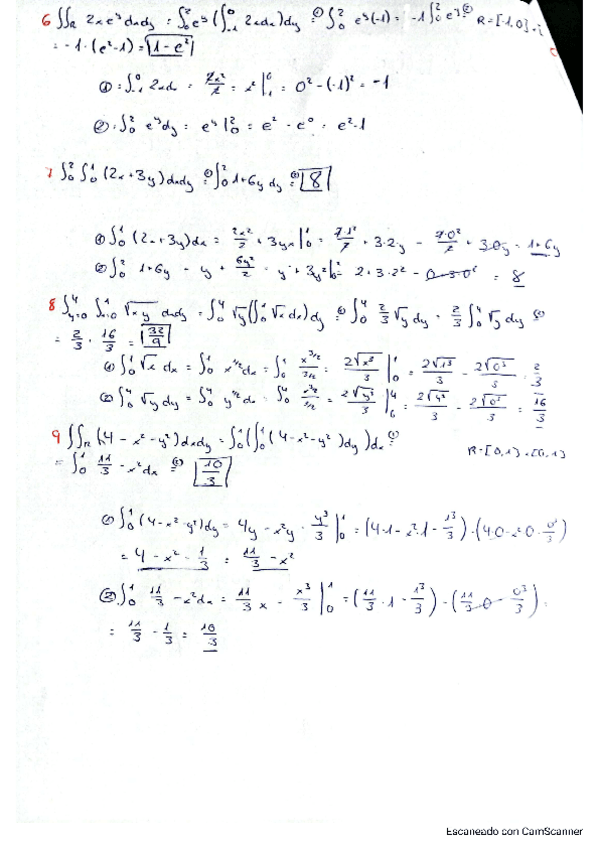 6 ∫∫R 2xe^y dxdy = ∫0^2 e^y (∫-1^0 2xdx)dy =① ∫0^2 e^y(-1) = -1 ∫0^2 e^y =② R=[-1,0]×
= -1·(e²-1) = 1-e²
①: ∫-1^0 2xdx = 2x²/2 = x² |-1^0 = 0²-(-1)² = -1
②: ∫0^2 e^y dy = e^y |0^2 = e² - e⁰ = e²-1
7 ∫0^2 ∫0^1 (2x+3y)dxdy =① ∫0^2 1+6y dy =② 8
① ∫0^1 (2x+3y)dx = 2x²/2 + 3yx |0^1 = 2·1²/2 + 3·2·y - 2·0²/2 + 3·0y = 1+6y
② ∫0^2 1+6y = y + 6y²/2 = y+3y² |0^2 = 2+3·2² - 0-3·0² = 8
8 ∫y=0^4 ∫x=0^1 √xy dxdy = ∫0^4 √y(∫0^1 √x dx)dy =① ∫0^4 2/3 √y dy = 2/3 ∫0^4 √y dy =②
= 2/3 · 16/3 = 32/9
① ∫0^1 √x dx = ∫0^1 x^1/2 dx = ∫0^1 x^3/2 / 3/2 = 2√x³/3 |0^1 = 2√1³/3 - 2√0³/3 = 2/3
② ∫0^4 √y dy = ∫0^4 y^1/2 dx = ∫0^4 x^3/2 / 3/2 = 2√y³/3 |0^4 = 2√4³/3 - 2√0³/3 = 16/3
9 ∫∫R (4-x²-y²)dxdy = ∫0^1(∫0^1 (4-x²-y²)dy)dx =① R=[0,1]×[0,1]
= ∫0^1 11/3 - x²dx =② 10/3
① ∫0^1 (4-x²-y²)dy = 4y - x²y - y³/3 |0^1 = (4·1-x²·1-1³/3)-(4·0-x²·0-0³/3)
= 4-x²-1/3 = 11/3 - x²
② ∫0^1 11/3 - x²dx = 11/3 x - x³/3 |0^1 = (11/3·1 - 1³/3) - (11/3·0 - 0³/3) =
= 11/3 - 1/3 = 10/3
Escaneado con CamScanner